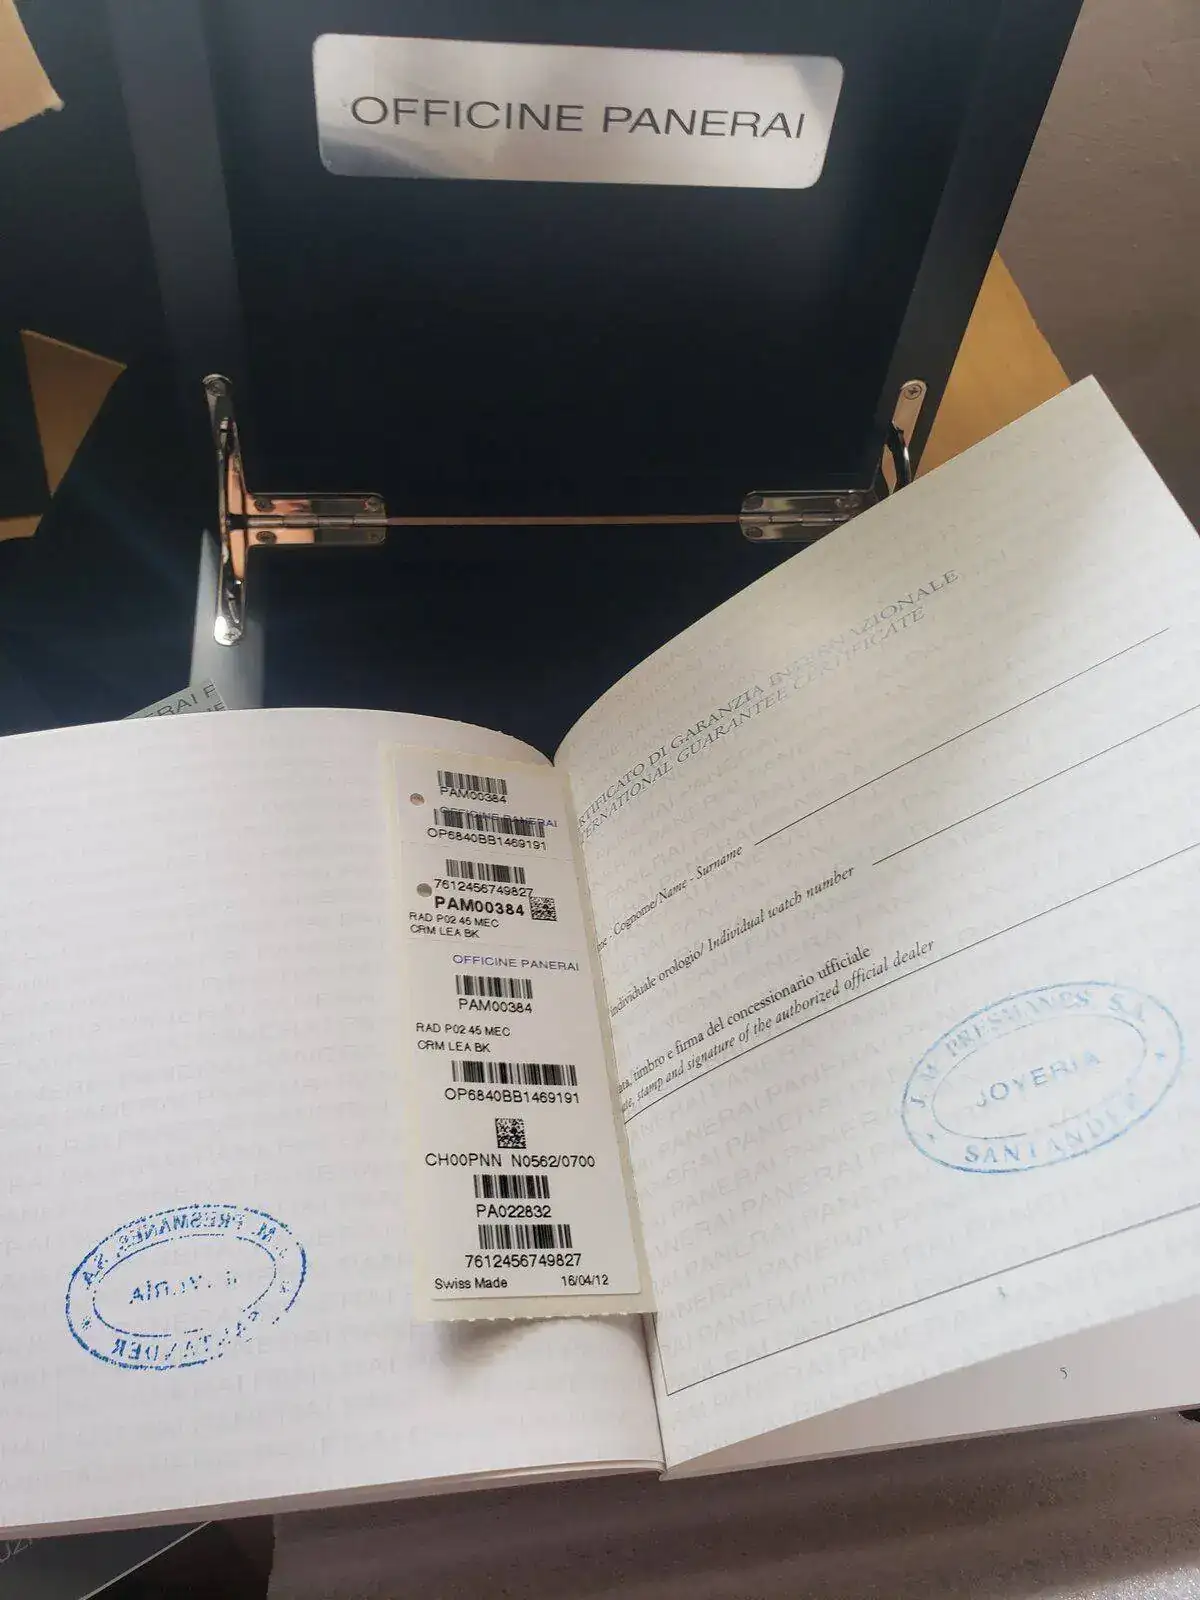 OFFICINE PANERAI
PAM00384
OFFICINE PANERAI
OP6840BB1469191
7612456749827
PAM00384
RAD P02 45 MEC
CRM LEA BK
OFFICINE PANERAI
PAM00384
RAD P02 45 MEC
CRM LEA BK
OP6840BB1469191
CH00PNN N0562/0700
PA022832
7612456749827
Swiss Made 16/04/12
RTIFICATO DI GARANZIA INTERNAZIONALE
TERNATIONAL GUARANTEE CERTIFICATE
me - Cognome/Name - Surname
individuale orologio/ Individual watch number
ata, timbro e firma del concessionario ufficiale
ate, stamp and signature of the authorized official dealer
J. M. PRESMANES S.A.
JOYERIA
SANTANDER
J. M. PRESMANES S.A.
SANTANDER
5